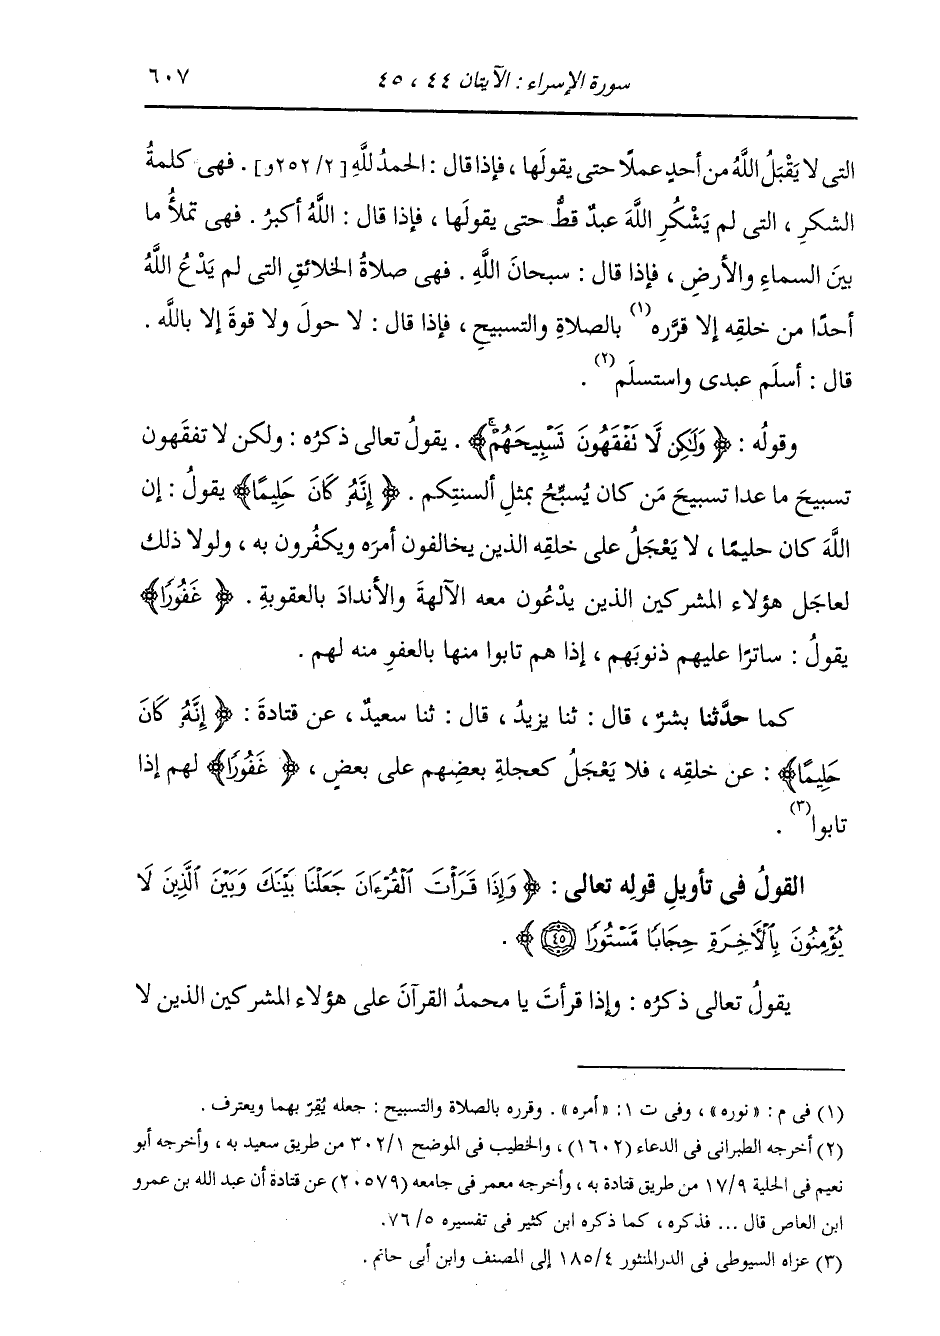 سورة الإسراء : الآيتان ٤٤ ، ٤٥ ٦٠٧
التى لا يَقْبَلُ اللَّهُ من أحدٍ عملًا حتى يقولَها ، فإذا قال : الحمدُ للَّهِ [٢٥٢/٢و] . فهى كلمةُ
الشكرِ ، التى لم يَشْكُرِ اللَّهَ عبدٌ قطُّ حتى يقولَها ، فإذا قال : اللَّهُ أكبرُ . فهى تملأُ ما
بينَ السماءِ والأرضِ ، فإذا قال : سبحانَ اللَّهِ . فهى صلاةُ الخلائقِ التى لم يَدْعُ اللَّهُ
أحدًا من خلقِه إلا قرَّره(١) بالصلاةِ والتسبيحِ ، فإذا قال : لا حولَ ولا قوةَ إلا باللَّه .
قال : أسلَم عبدى واستسلَم(٢) .
وقولُه : ﴿ وَلَٰكِن لَّا نَفْقَهُونَ تَسْبِيحَهُمْ ۚ﴾ . يقولُ تعالى ذكرُه : ولكن لا تفقَهون
تسبيحَ ما عدا تسبيحَ مَن كان يُسبِّحُ بمثلِ ألسنتِكم . ﴿ إِنَّهُۥ كَانَ حَلِيمًا﴾ يقولُ : إن
اللَّهَ كان حليمًا ، لا يَعْجَلُ على خلقِه الذين يخالفون أمرَه ويكفُرون به ، ولولا ذلك
لعاجَل هؤلاء المشركين الذين يدْعُون معه الآلهةَ والأندادَ بالعقوبةِ . ﴿ غَفُورًا﴾
يقولُ : ساترًا عليهم ذنوبَهم ، إذا هم تابوا منها بالعفوِ منه لهم .
كما حدَّثنا بشرٌ ، قال : ثنا يزيدُ ، قال : ثنا سعيدٌ ، عن قتادةَ : ﴿ إِنَّهُۥ كَانَ
حَلِيمًا﴾ : عن خلقِه ، فلا يَعْجَلُ كعجلةِ بعضِهم على بعضٍ ، ﴿ غَفُورًا﴾ لهم إذا
تابوا(٣) .
القولُ فى تأويلِ قولِه تعالى : ﴿ وَإِذَا قَرَأْتَ ٱلْقُرْءَانَ جَعَلْنَا بَيْنَكَ وَبَيْنَ ٱلَّذِينَ لَا
يُؤْمِنُونَ بِٱلْأَخِرَةِ حِجَابًا مَّسْتُورًا ٤٥ ﴾ .
يقولُ تعالى ذكرُه : وإذا قرأتَ يا محمدُ القرآنَ على هؤلاء المشركين الذين لا
(١) فى م : «نوره» ، وفى ت ١ : «أمره» . وقرره بالصلاة والتسبيح : جعله يُقِرّ بهما ويعترف .
(٢) أخرجه الطبرانى فى الدعاء (١٦٠٢) ، والخطيب فى الموضح ٣٠٢/١ من طريق سعيد به ، وأخرجه أبو
نعيم فى الحلية ١٧/٩ من طريق قتادة به ، وأخرجه معمر فى جامعه (٢٠٥٧٩) عن قتادة أن عبد الله بن عمرو
ابن العاص قال ... فذكره ، كما ذكره ابن كثير فى تفسيره ٧٦/٥.
(٣) عزاه السيوطى فى الدرالمنثور ١٨٥/٤ إلى المصنف وابن أبى حاتم .